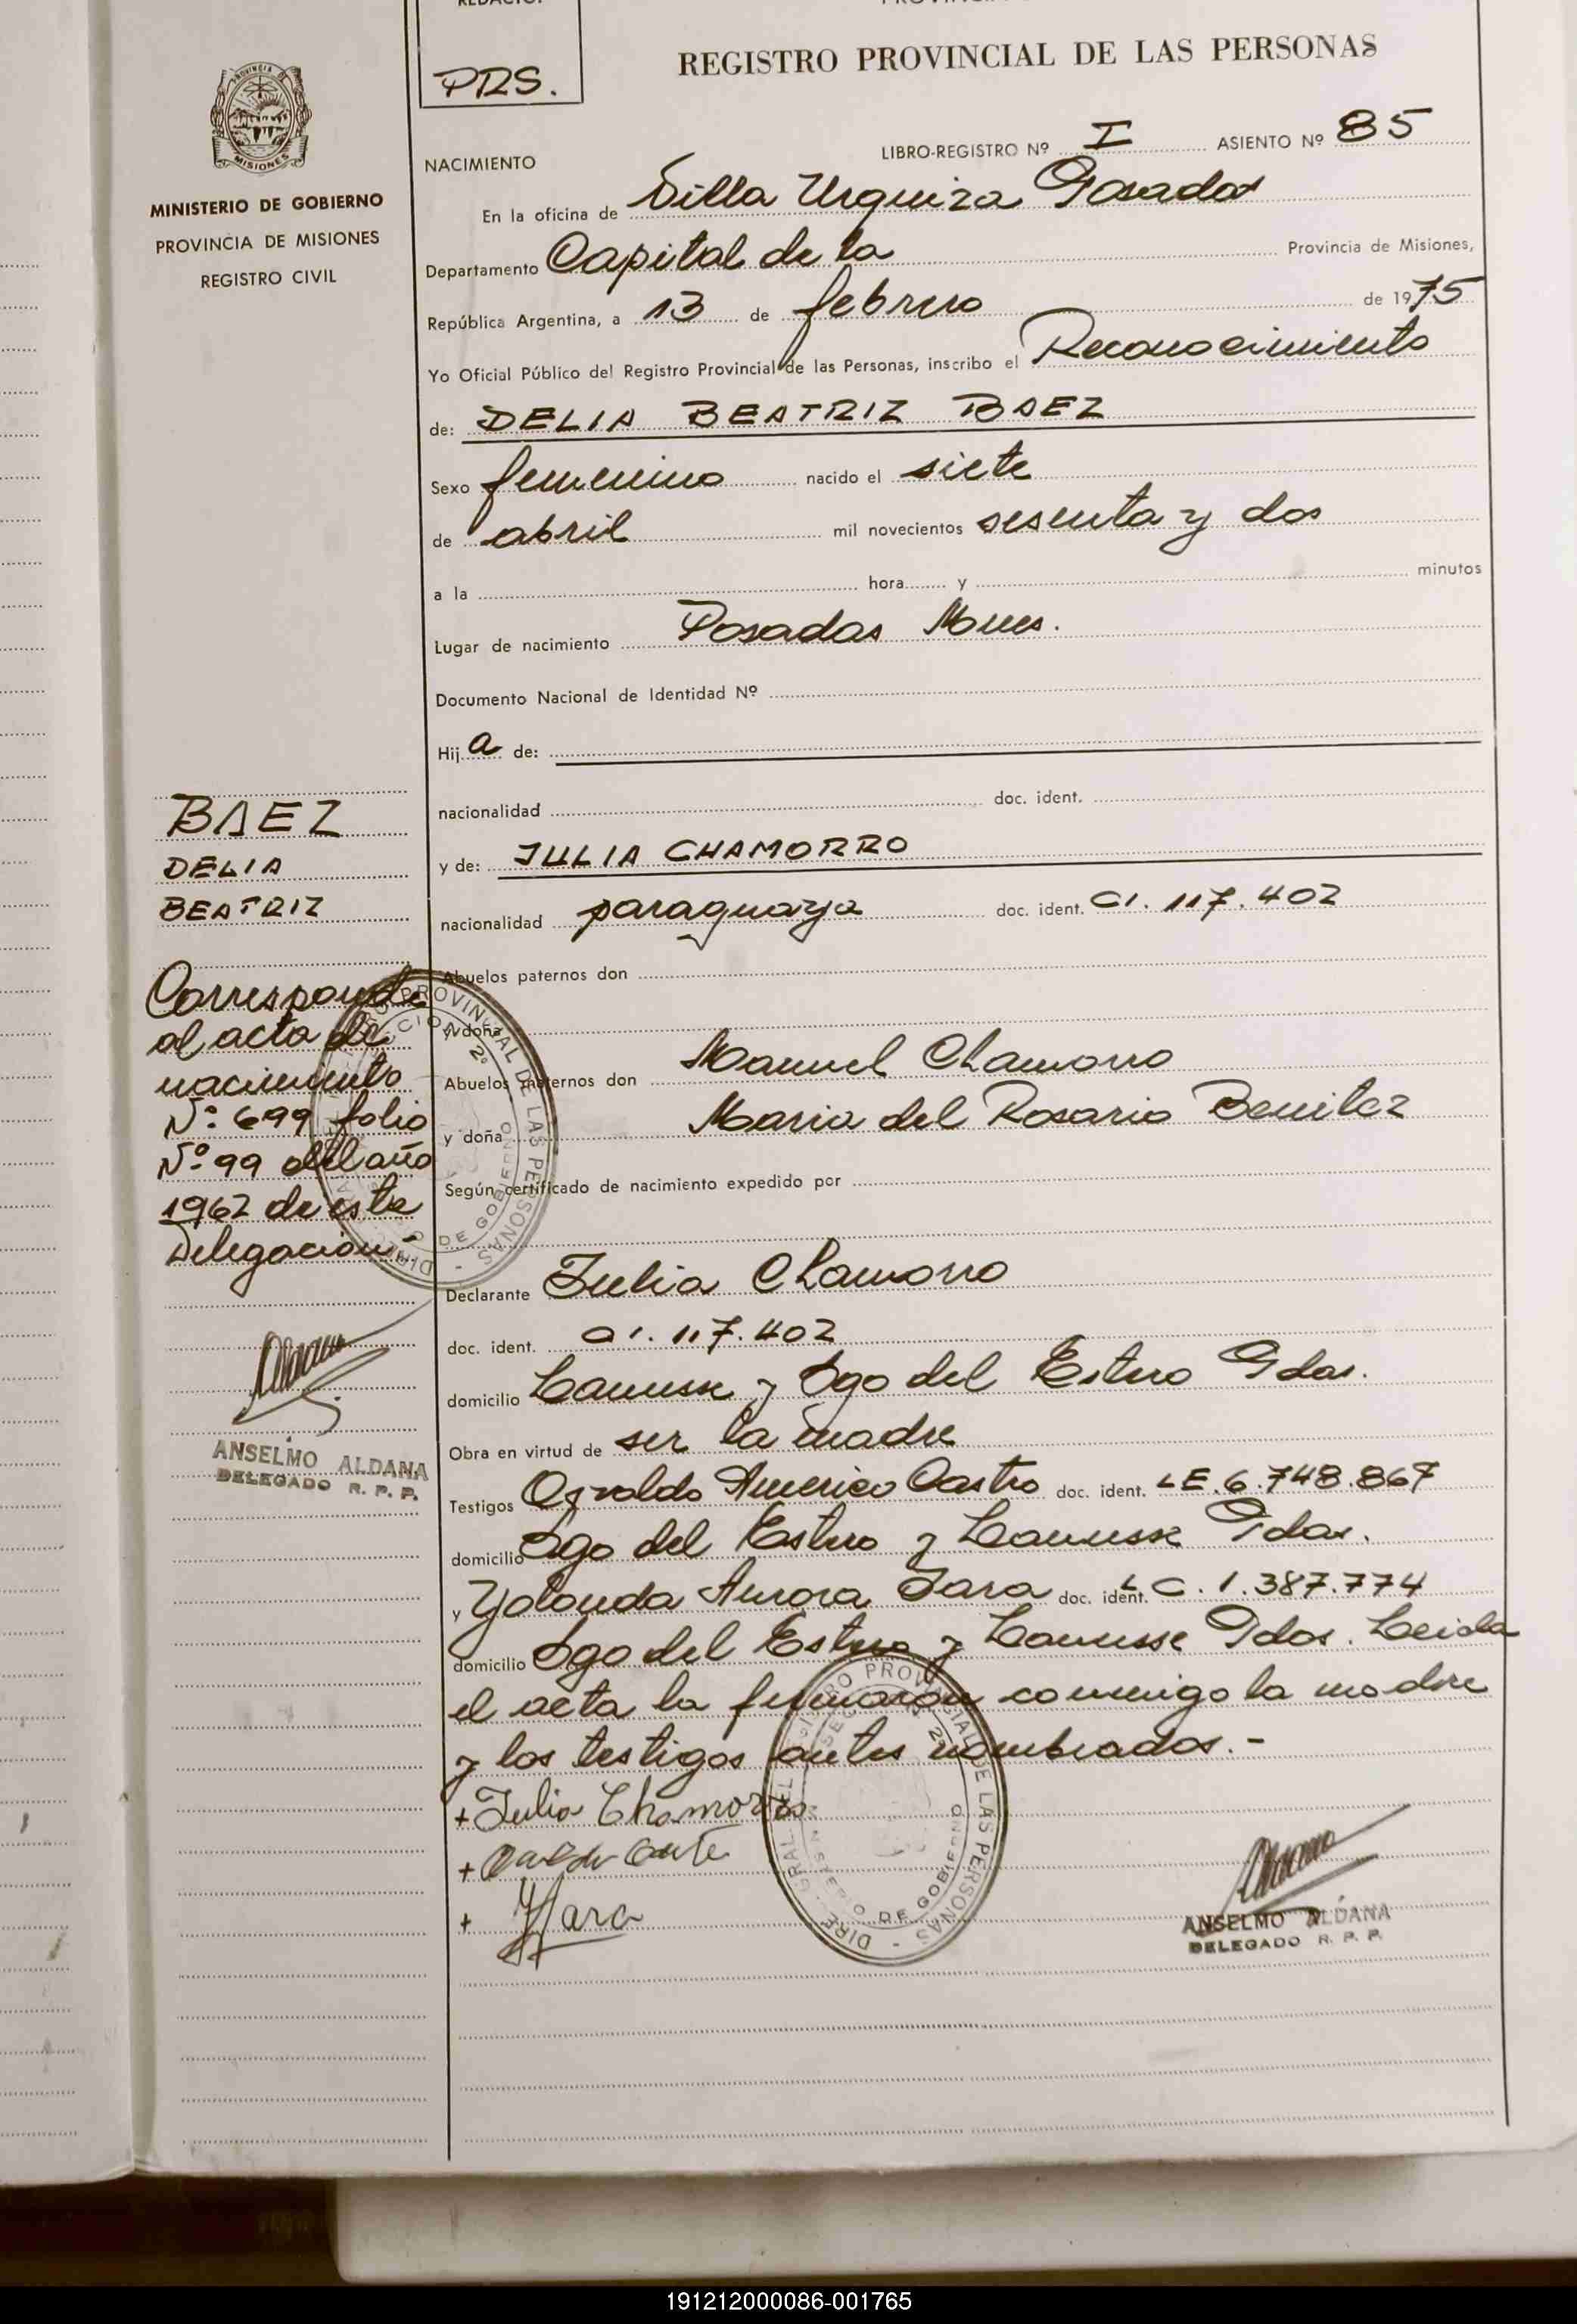 PRS.
REGISTRO PROVINCIAL DE LAS PERSONAS
PROVINCIA DE MISIONES
MINISTERIO DE GOBIERNO
PROVINCIA DE MISIONES
REGISTRO CIVIL
NACIMIENTO
LIBRO-REGISTRO Nº I ASIENTO Nº 85
En la oficina de Villa Urquiza Posadas
Departamento Capital de la Provincia de Misiones,
República Argentina, a 13 de febrero de 1975
Yo Oficial Público del Registro Provincial de las Personas, inscribo el Reconocimiento
de: DELIA BEATRIZ BAEZ
Sexo femenino nacido el siete
de abril mil novecientos sesenta y dos
a la hora y minutos
Lugar de nacimiento Posadas Mnes.
Documento Nacional de Identidad Nº
Hij a de:
nacionalidad doc. ident.
y de: JULIA CHAMORRO
nacionalidad paraguaya doc. ident. CI. 117.402
Abuelos paternos don
y doña
Abuelos maternos don Manuel Chamorro
y doña Maria del Rosario Benitez
Según certificado de nacimiento expedido por
Declarante Julia Chamorro
doc. ident. CI. 117.402
domicilio Lanusse y Sgo del Estero Pdas.
Obra en virtud de ser la madre
Testigos Osvaldo Americo Castro doc. ident. LE. 6.748.867
domicilio Sgo del Estero y Lanusse Pdas.
y Yolanda Aurora Jara doc. ident. LC. 1.387.774
domicilio Sgo del Estero y Lanusse Pdas. Leida
el acta la firmaron conmigo la madre
y los testigos antes nombrados.-
+ Julia Chamorro
+
+ YJara
ANSELMO ALDANA
DELEGADO R. P. P.
BAEZ
DELIA
BEATRIZ
Corresponde
al acta de
nacimiento
Nº 699 folio
Nº 99 del año
1962 de esta
Delegación-
ANSELMO ALDANA
DELEGADO R. P. P.
191212000086-001765